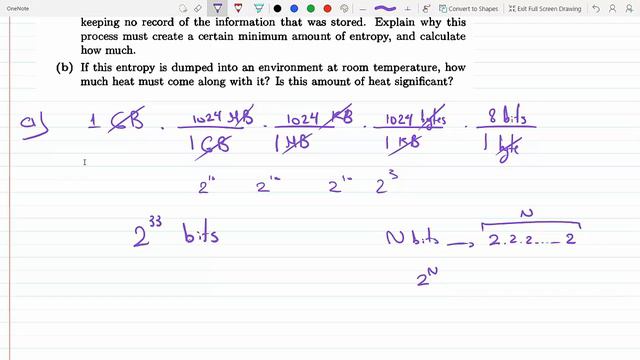 OneNote
Convert to Shapes
Exit Full Screen Drawing
keeping no record of the information that was stored. Explain why this
process must create a certain minimum amount of entropy, and calculate
how much.
(b) If this entropy is dumped into an environment at room temperature, how
much heat must come along with it? Is this amount of heat significant?
a) 1 GB · 1024 MB / 1 GB · 1024 KB / 1 MB · 1024 bytes / 1 KB · 8 bits / 1 byte
2¹⁰ 2¹⁰ 2¹⁰ 2³
N
2³³ bits N bits → 2.2.2.... 2
2ᴺ